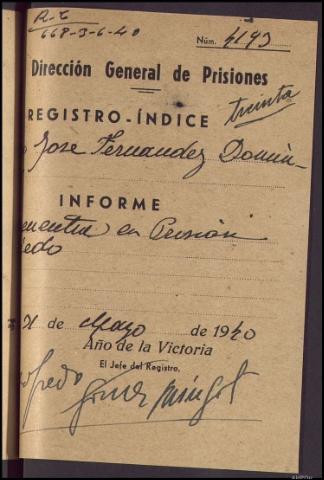 R-E
668-3-6-40
Núm. 4193
Dirección General de Prisiones
REGISTRO-ÍNDICE
treinta
Jose Fernandez Domin-
INFORME
en Prisión
21 de Mayo de 1940
Año de la Victoria
El Jefe del Registro,